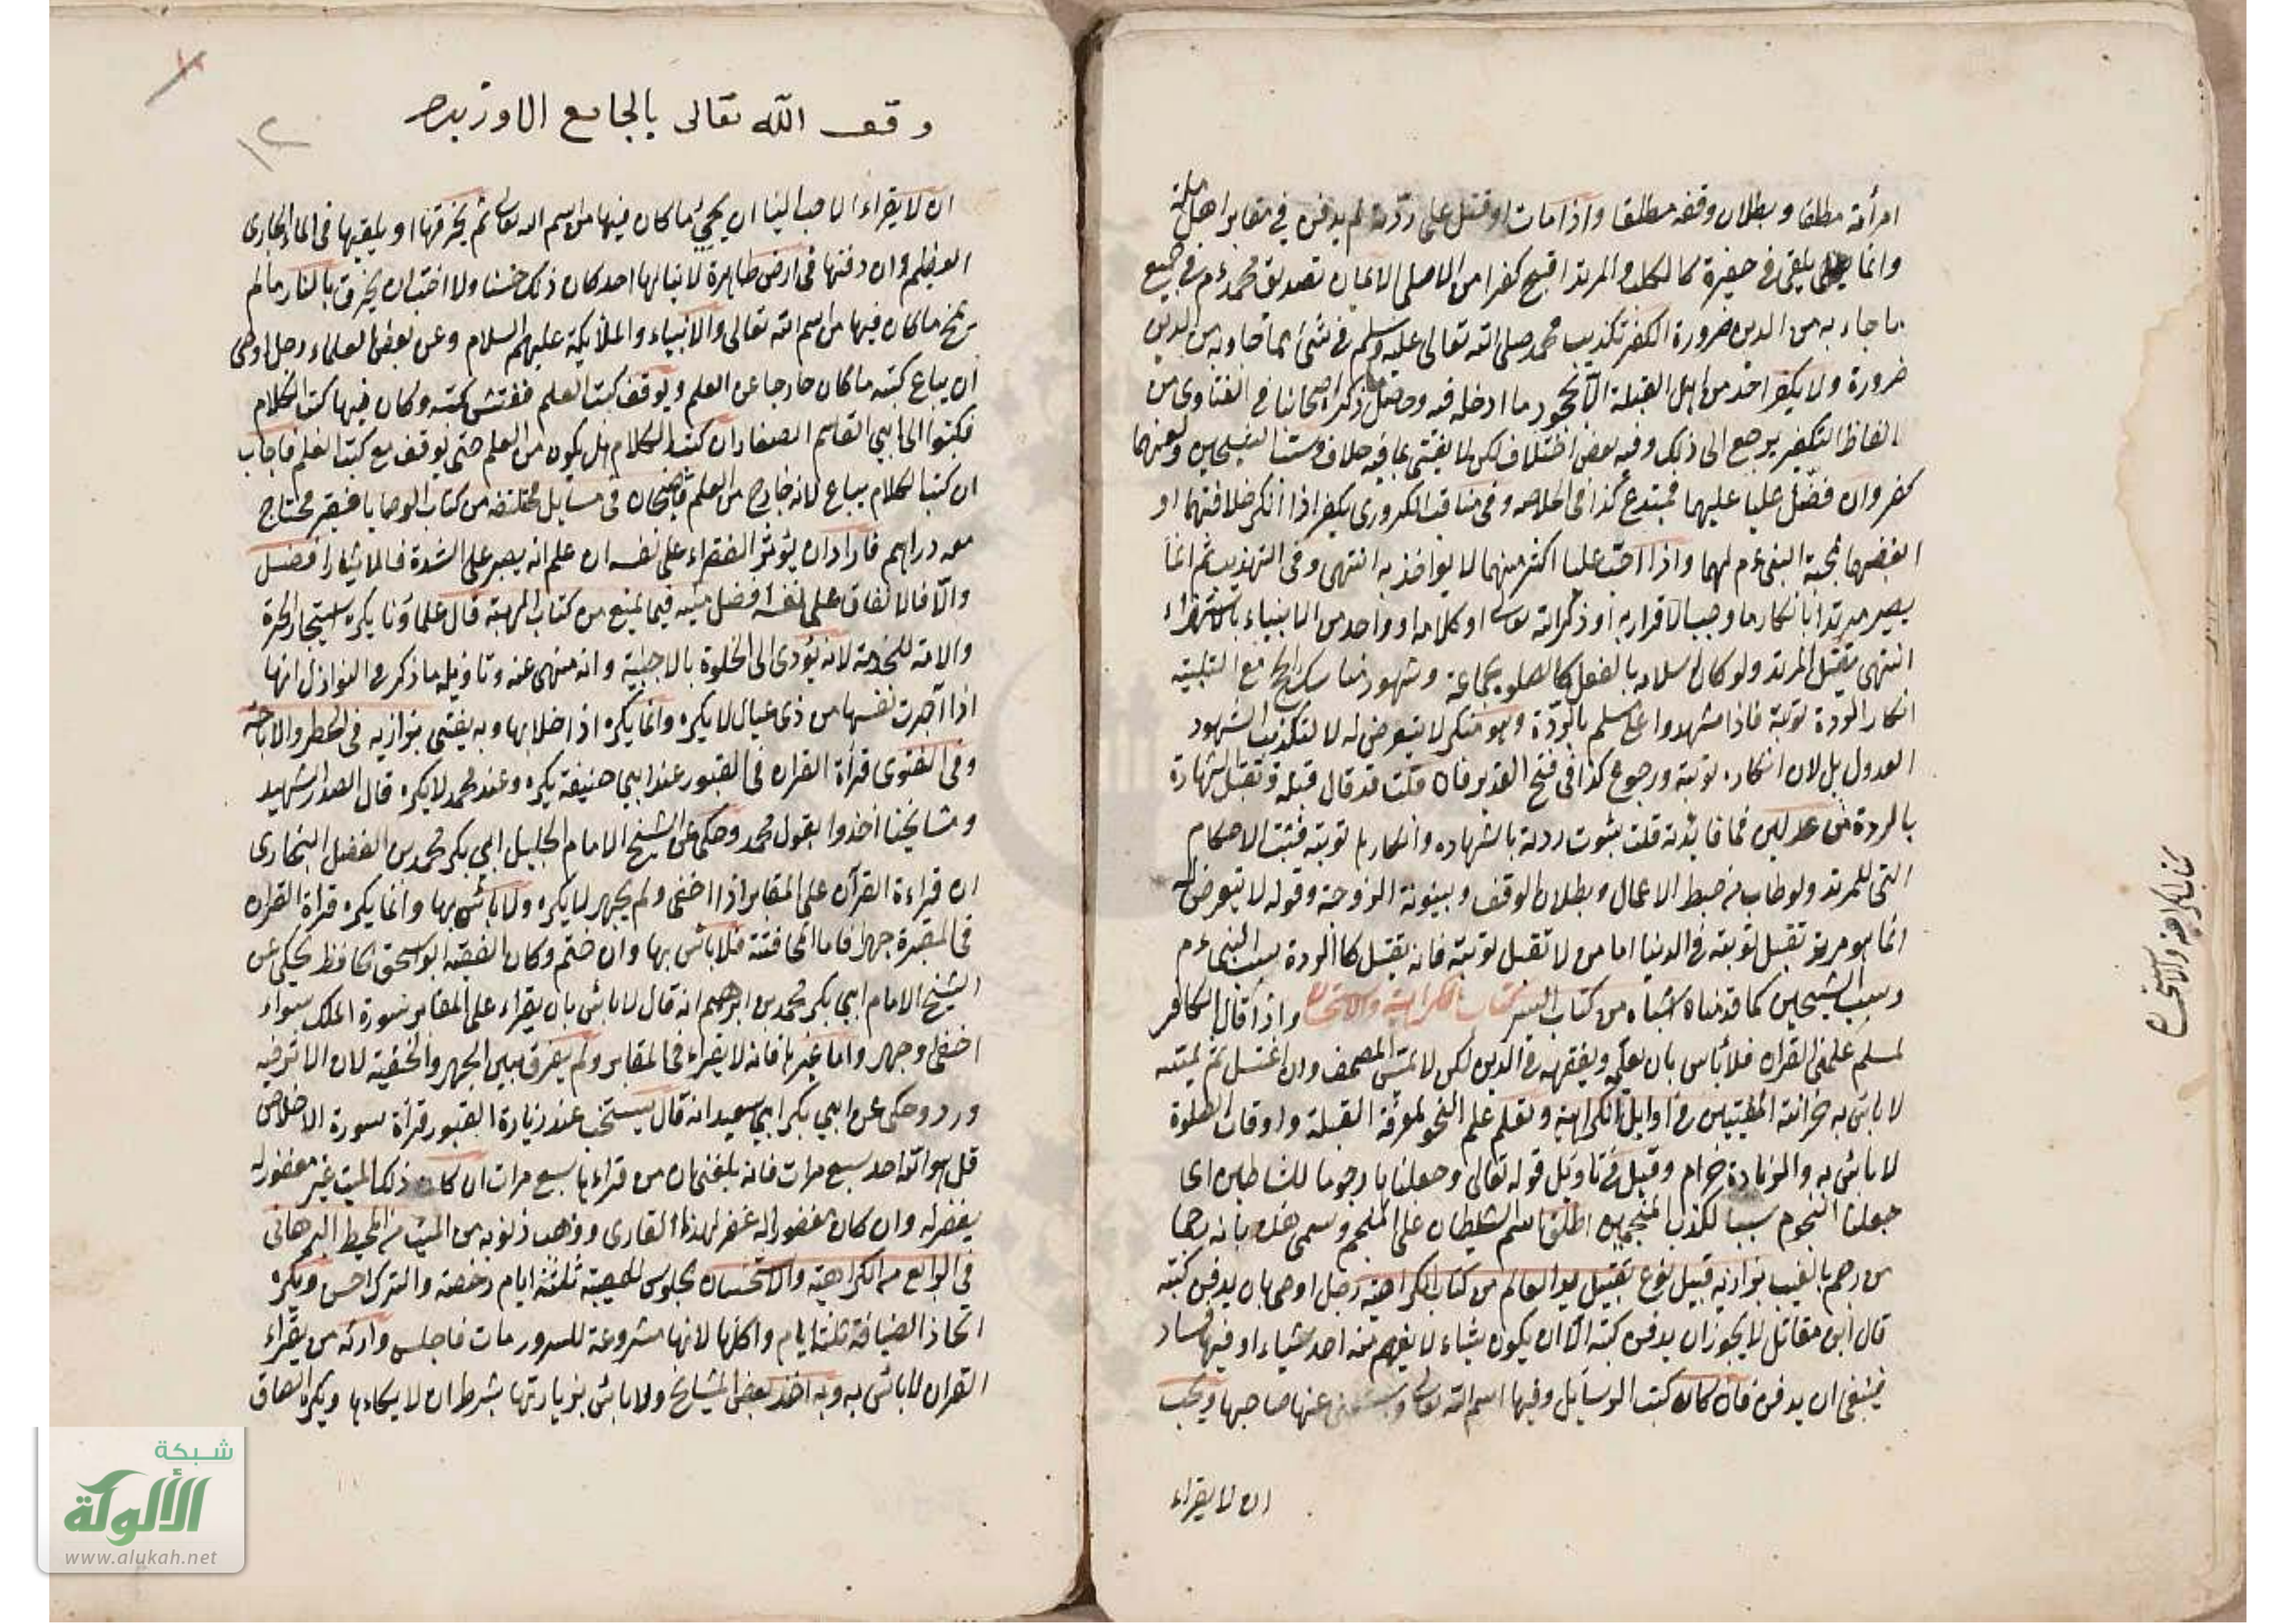 امرأته مطلقا وبطلان وقفه مطلقا واذا مات او قتل على ردته لم يدفن في مقابر اهل ملة
وانما يلقى في حفيرة كالكلب والمرتد اقبح كفرا من الاصلي الايمان تصديق محمد عم في جميع
ما جاء به من الدين ضرورة الكفر تكذيب محمد صلى الله تعالى عليه وسلم في شئ مما جاء به من الدين
ضرورة ولا يكفر احد من اهل القبلة الا بجحود ما ادخله فيه وحاصل ما ذكر اصحابنا في الفتاوى من
الفاظ التكفير يرجع الى ذلك وفيه بعض اختلاف لكن لا يفتى بما فيه خلاف وسب الشيخين ولعنهما
كفر وان فضل عليا عليهما فمبتدع كذا في الخلاصه وفي مناقب الكردرى يكفر اذا انكر خلافتهما او
ابغضهما لمحبة النبي عم لهما واذا احب عليا اكثر منهما لا يواخذ به انتهى وفي التهذيب ثم انما
يصير مرتدا بانكار ما وجب الاقرار به او ذكر الله تعالى او كلامه او واحد من الانبياء بالاستهزاء
انتهى يقتل المرتد ولو كان اسلامه بالفعل كالصلوة بجماعة وشهود مناسك الحج مع التلبية
انكار الردة توبة فاذا شهدوا على مسلم بالردة وهو منكر لا يتعرض له لا لتكذيب الشهود
العدول بل لان انكاره توبة ورجوع كذا في فتح القدير فان قلت قد قال قبله وتقبل الشهادة
بالردة من عدلين فما فائدته قلت ثبوت ردته بالشهاده وانكارها توبة فتثبت الاحكام
التى للمرتد ولو تاب من حبط الاعمال وبطلان الوقف وبينونة الزوجة وقوله لا يتعرض له
انما هو مرتد تقبل توبته في الدنيا اما من لا تقبل توبته فانه يقتل كالردة بسب النبي عم
وسب الشيخين كما قدمناه اشباه من كتاب السير كتاب الكراهية والاستحسان واذا قال الكافر
لمسلم علمني القران فلا بأس بان يعلمه ويفقهه في الدين لكن لا يمس المصحف وان اغتسل ثم يمسه
لا بأس به خزانة المفتيين في اوايل الكراهية وتعلم علم النجوم لمعرفة القبلة واوقات الصلوة
لا بأس به والزيادة حرام وقيل في تاويل قوله تعالى وجعلناها رجوما للشياطين اى
جعلنا النجوم سببا لكذب المنجمين اطلق اسم الشيطان على المنجم وسمى هذيانه رجما
من رجم بالغيب بزازيه قبيل نوع تقبيل يد العالم من كتاب الكراهية رجل اوصى بان يدفن كتبه
قال ابن مقاتل لا يجوز ان يدفن كتبه الا ان يكون شياء لا يفهم منه احد شياء او فيها فساد
فينبغى ان يدفن فان كان كتب الرسايل وفيها اسم الله تعالى ويستغنى عنها صاحبها ويحب
ان لا يقراء
كتاب الكراهية والاستحسان
وقف الله تعالى بالجامع الاوزبيه
١٢
ان لا يقراء الاحب الينا ان يمحي ما كان فيها من اسم الله تعالى ثم يحرقها او يلقيها في الماء الجارى
العظيم وان دفنها في ارض طاهرة لا ينالها احد كان ذلك حسنا ولا احب ان يحرق بالنار ما لم
يمح ما كان فيها من اسم الله تعالى والانبياء والملأيكة عليهم السلام وعن بعض العلماء رجل اوصى
ان يباع كتبه ما كان خارجا عن العلم ويوقف كتب العلم ففتش كتبه وكان فيها كتب الكلام
فكتبوا الى ابي القاسم الصفار ان كتب الكلام هل يكون من العلم حتى يوقف مع كتب العلم فاجاب
ان كتب الكلام يباع لانه خارج من العلم قاضيخان في مسايل مختلفة من كتاب الوصايا فقير محتاج
معه دراهم فاراد ان يؤثر الفقراء على نفسه ان علم انه يصبر على الشدة فالايثار افضل
والا فالانفاق على نفسه افضل منيه فيما يمنع من كتاب الهبة قال علماؤنا يكره استيجار الحرة
والامة للخدمة لانه يؤدى الى الخلوة بالاجنبية وانه منهى عنه وتاويله ما ذكر في النوازل انها
اذا آجرت نفسها من ذى عيال لا يكره وانما يكره اذا خلا بها وبه يفتى بزازيه في الحظر والاباحة
وفي الفتوى قرأة القران في القبور عند ابي حنيفة يكره وعند محمد لا يكره قال الصدر الشهيد
ومشايخنا اخذوا بقول محمد وحكى عن الشيخ الامام الجليل ابي بكر محمد بن الفضل البخارى
ان قراءة القرآن على المقابر اذا اخفى ولم يجهر لا يكره ولا بأس بها وانما يكره قرأة القران
في المقبرة جهرا فاما المخافتة فلا بأس بها وان ختم وكان الفقيه ابو اسحق الحافظ يحكى عن
الشيخ الامام ابي بكر محمد بن ابرهيم انه قال لا بأس بان يقراء على المقابر سورة الملك سواء
اخفى او جهر واما غيرها فانه لا يقراء في المقابر ولم يفرق بين الجهر والخفية لان الاثر فيه
ورد وحكى عن ابي بكر ابي سعيد انه قال يستحب عند زيارة القبور قرأة سورة الاخلاص
قل هو الله احد سبع مرات فانه بلغنى ان من قراءها سبع مرات ان كان ذلك الميت غير مغفور له
يغفر له وان كان مغفورا له غفر لهذا القارى ووهب ذنوبه من الميت من المحيط البرهانى
في الرابع من الكراهية والاستحسان الجلوس للمصيبة ثلثة ايام رخصة والترك احسن ويكره
اتخاذ الضيافة ثلثة ايام واكلها لانها مشروعة للسرور مات فاجلس وارثه من يقراء
القران لا بأس به وبه اخذ بعض المشايخ ولا بأس بزيارتها بشرط ان لا يطاءها ويكره الصاق
شبكة
الألوكة
www.alukah.net